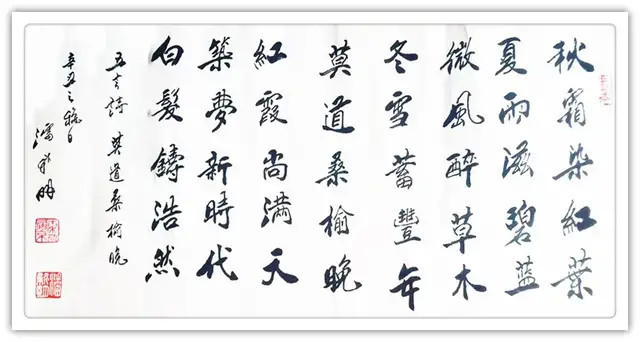 秋霜染紅葉
夏雨滋碧藍
微風醉草木
冬雪蓄豐年
莫道桑榆晚
紅霞尚滿天
築夢新時代
白髮鑄浩然
五言詩 莫道桑榆晚
辛丑之秋日